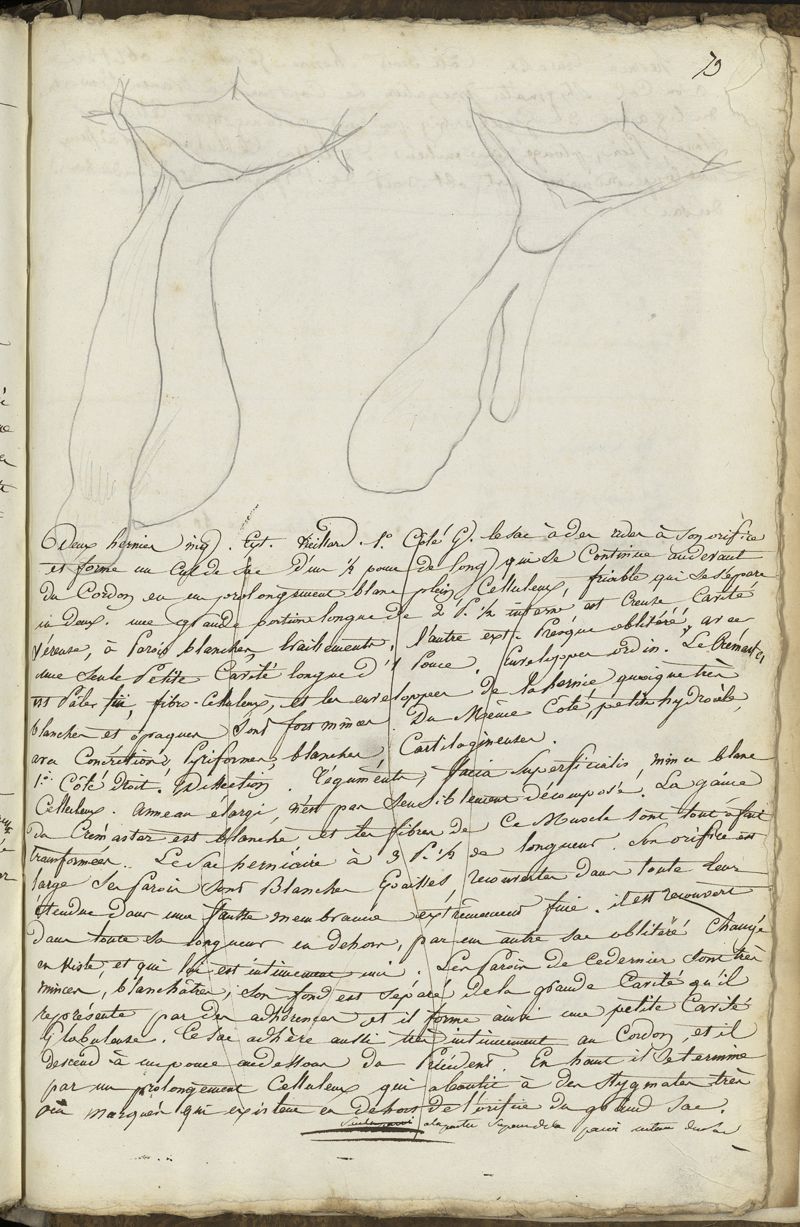 73
Deux hernies ing. Vieillard. 1.° Côté G. le sac à des rides à son orifice
et forme un Cul de Sac d'un ½ pouce de long qui se Continue audevant
du Cordon en un prolongement blanc plein, Celluleux, friable qui se separe
en deux. une grande portion longue de 2 P. ½ intern est Creuse, Cavité
séreuse, à Parois blanches, l'autre ext. Presque oblitéré, avec
une Seule Petite Cavité longue d'1 Pouce. Enveloppes ordin. Le Crémaster
est Pâle, fibro-Celluleux, et les enveloppes de la hernie quoique très
blanches et opaques Sont fort minces. Du Même Coté petite hydrocèle,
avec Concrétions Pyriformes, blanches, Cartilagineuses.
1.° Côté Droit. Dissection. Téguments, facia Superficialis, mince blanc
Celluleux. Anneau élargi, n'est pas Sensiblement décomposé. La gaine
du Cremaster est blanche et les fibres de Ce Muscle sont tout à fait
transformées. Le Sac herniaire à 3 P. ½ de longueur. Son orifice est
large Ses Parois Sont Blanches Epaisses, recouvertes dans toute leur
étendue d'une fausse membrane extrêmement fine. il est recouvert
dans toute sa longueur en dehors, par un autre sac oblitéré Changé
en Kiste, et qui lui est intimement uni. Les Parois de ce dernier Sont très
minces, blanchâtres, Son fond est séparé de la grande Cavité qu'il
représente par des adhérences et il forme ainsi une petite Cavité
Globuleuse. Ce sac adhère aussi très intimement au Cordon, et il
descend à un pouce audessous du Précédent. En haut il Se termine
par un prolongement Celluleux qui aboutit à des Stygmates très
marqués qui existent en dehors de l'orifice du grand sac.
à la partie Super de la paroi interne du sac